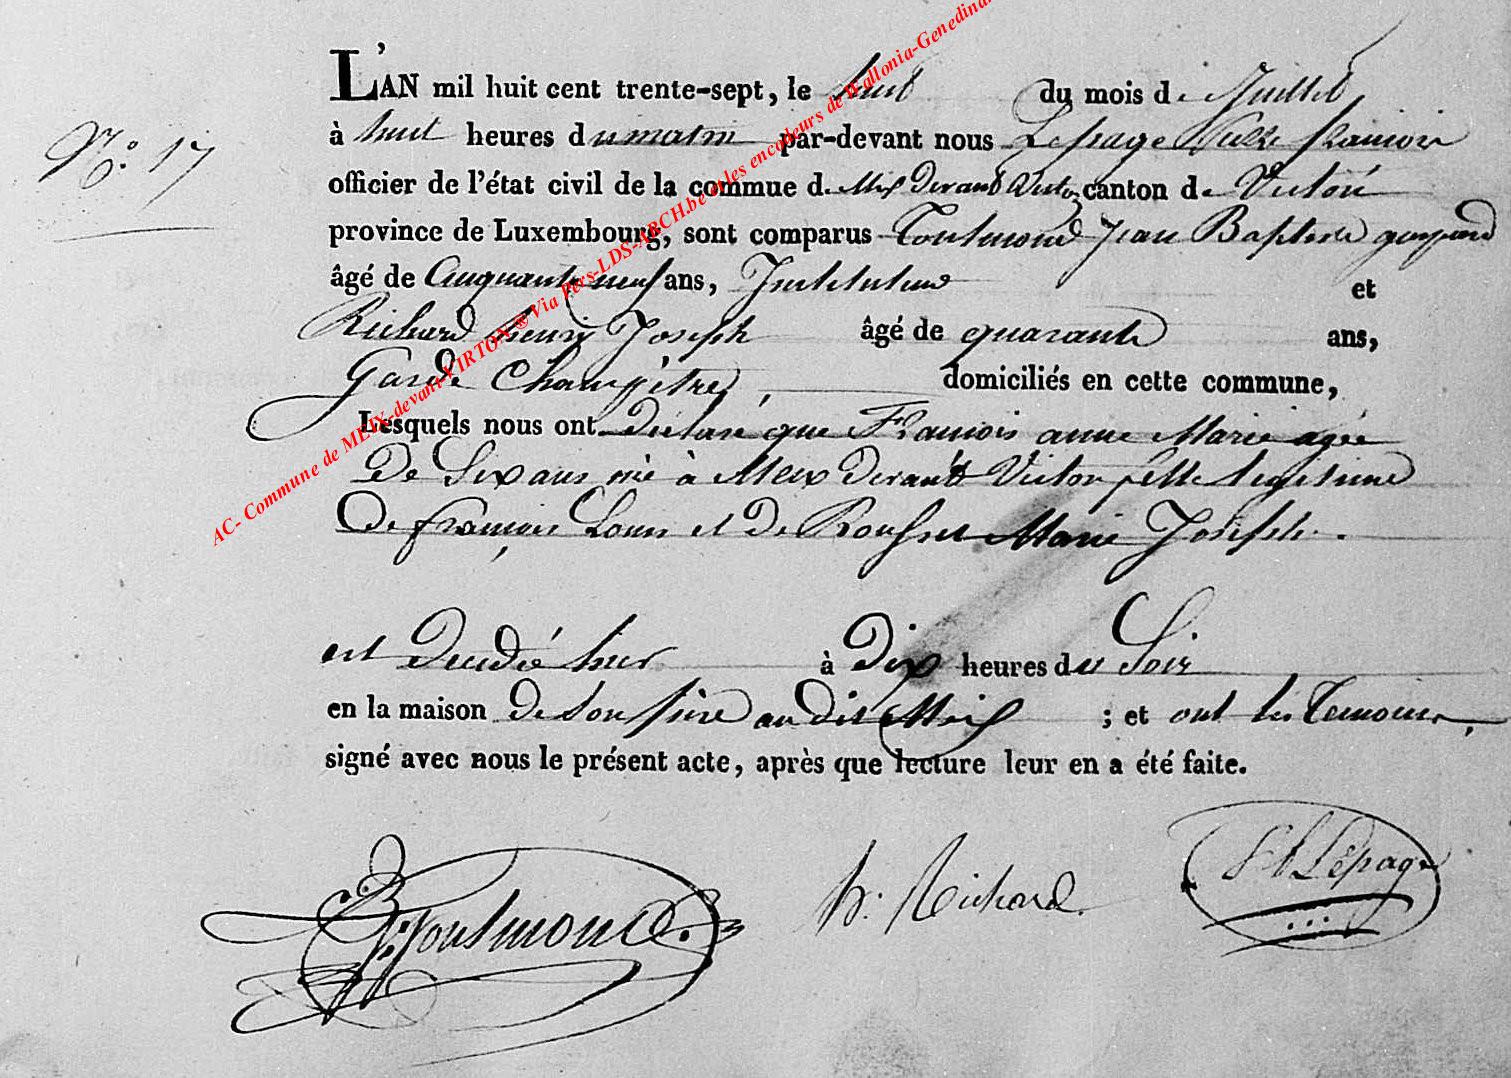 L'AN mil huit cent trente-sept, le huit du mois de Juillet
N.° 17
à huit heures du matin par-devant nous Lepage françois
officier de l'état civil de la commue de Meix devant Virton canton de Virton
province de Luxembourg, sont comparus Toulmond Jean Baptiste
âgé de Cinquante neuf ans, Instituteur et
Richard henri Joseph âgé de quarante ans,
Garde Champêtre, domiciliés en cette commune,
Lesquels nous ont déclaré que François anne Marie agée
De Six ans née à Meix Devant Virton fille legitime
De françois Louis et De Marie Joseph.
est Decedé hier à Dix heures du Soir
en la maison De Son père au Dit Meix ; et ont les Temoins,
signé avec nous le présent acte, après que lecture leur en a été faite.
Toulmond. h. Richard. Lepage
AC- Commune de MEIX-devant-VIRTON ® Via Pers-LDS-ARCH.be et les encodeurs de Wallonia-Genedina